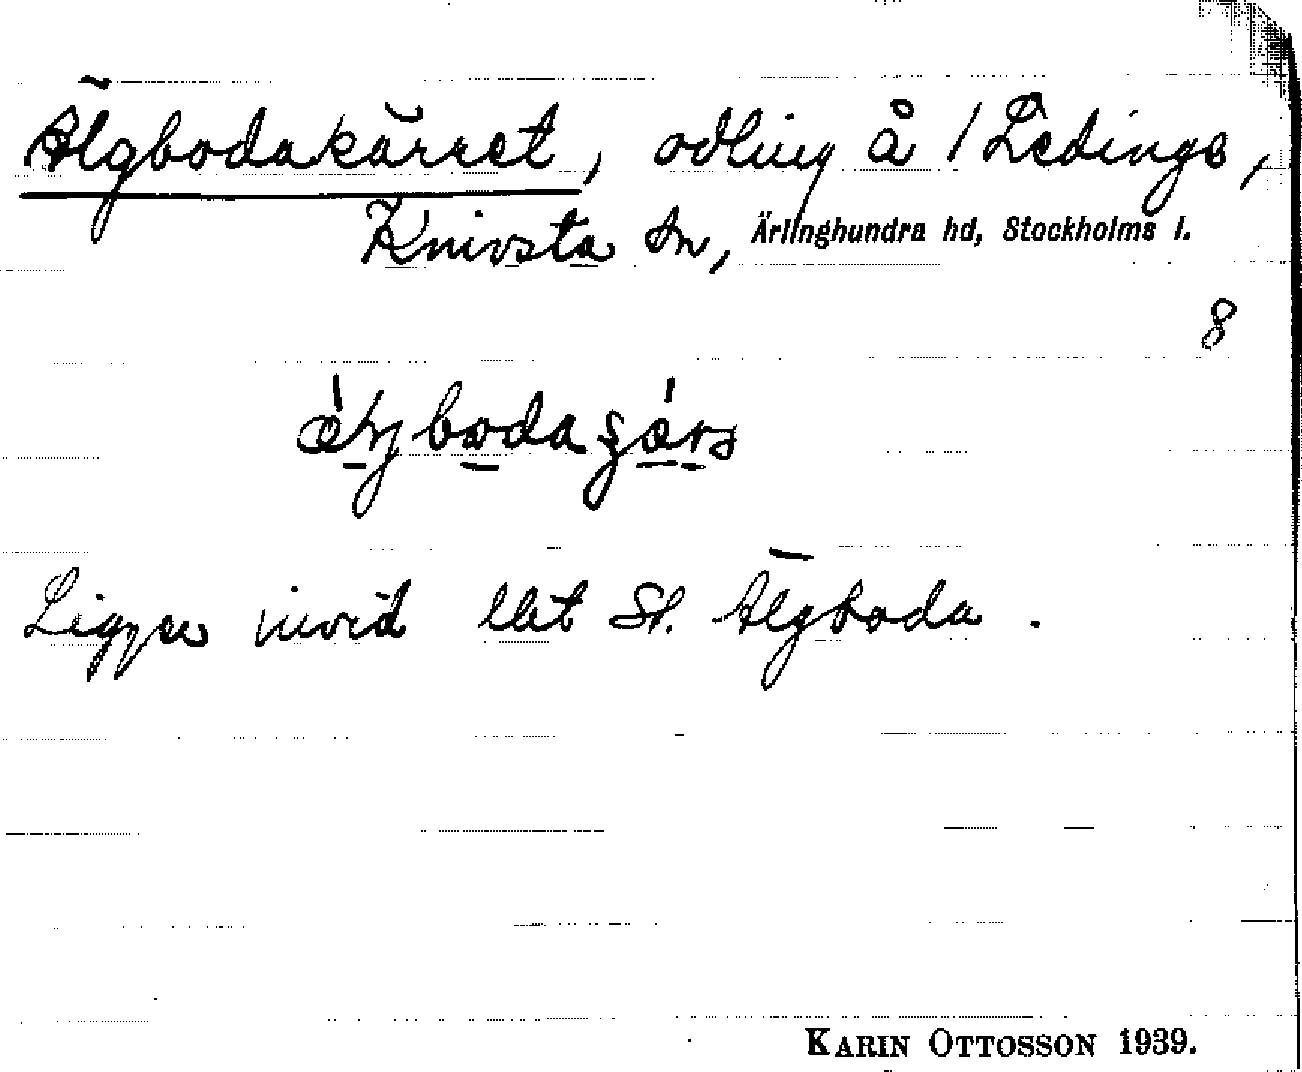 Älgbodakärret, odling å 1 Ledinge,
Knivsta sn, Ärlinghundra hd, Stockholms l.
8
Ligger invid lht St. Älgboda.
KARIN OTTOSSON 1939.